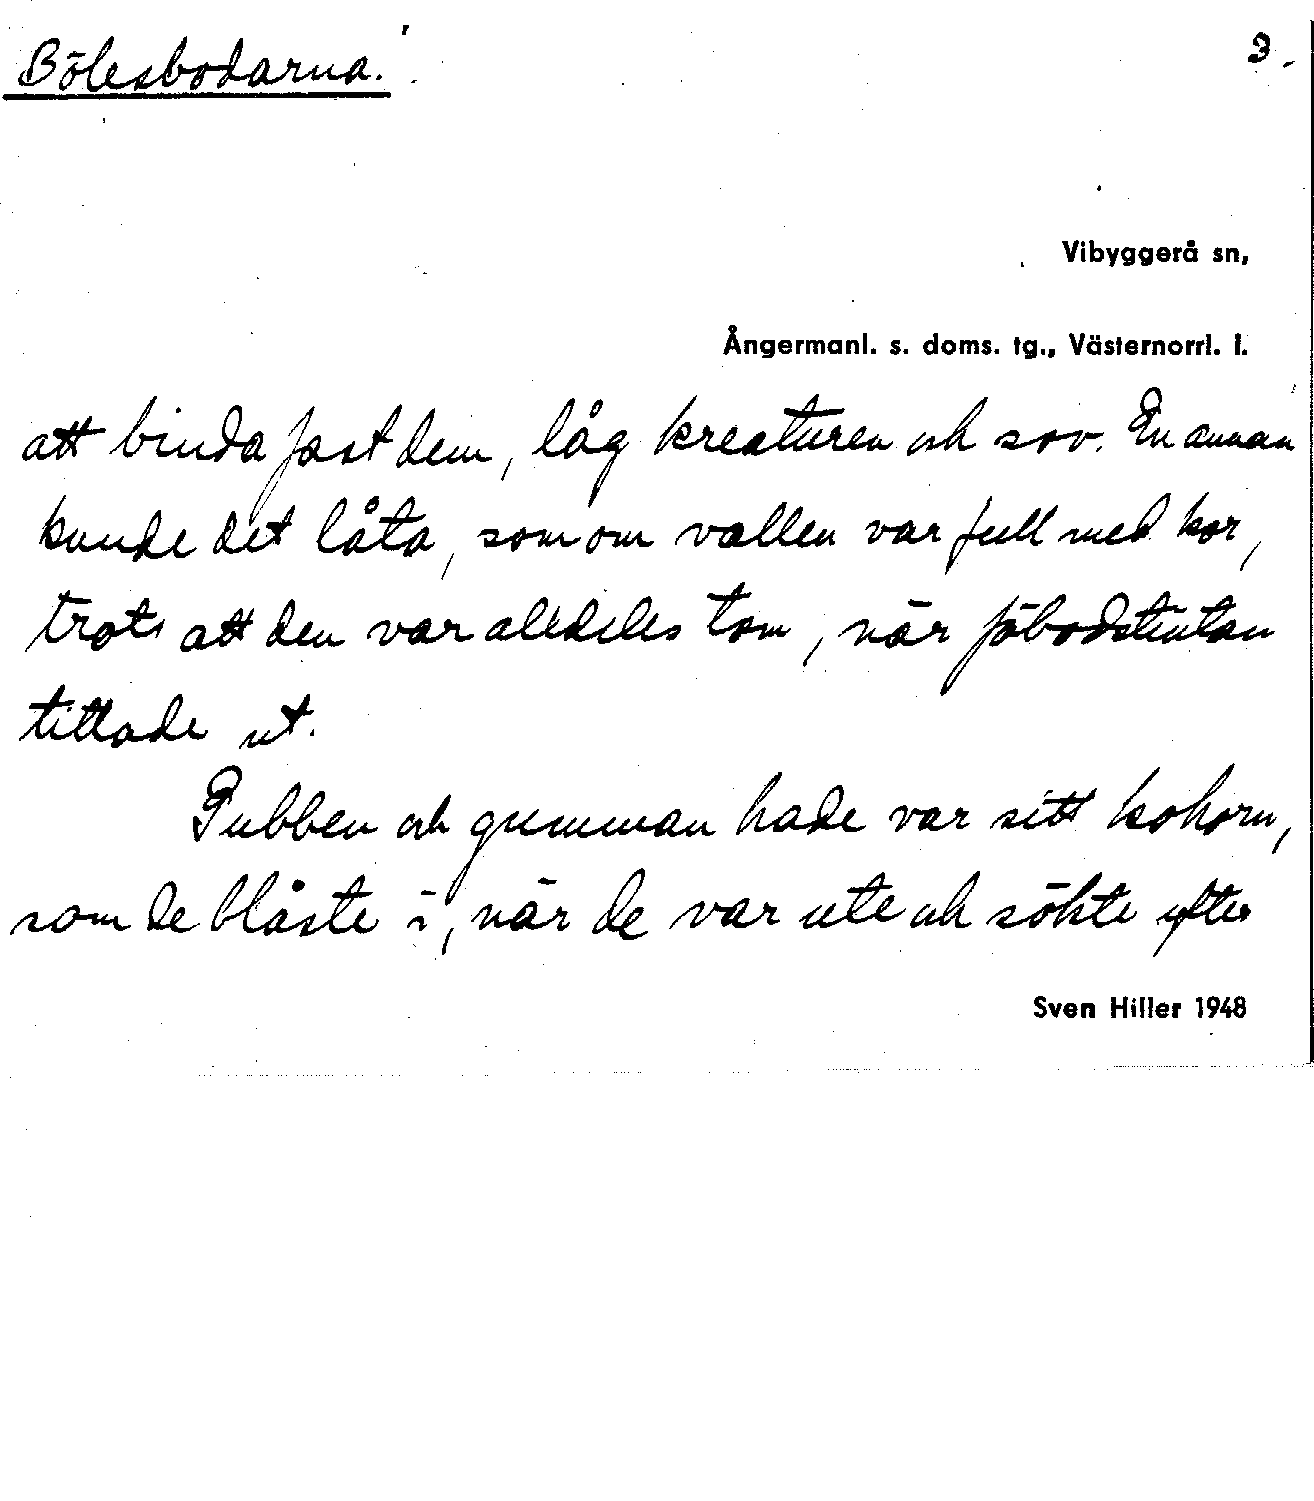 Bölesbodarna.
3.
Vibyggerå sn,
Ångermanl. s. doms. tg., Västernorrl. l.
att binda fast dem, låg kreaturen och sov. En annan
kunde det låta, som om vallen var full med kor,
trots att den var alldeles tom, när fäbodstintan
tittade ut.
Gubben och gumman hade var sitt kohorn,
som de blåste i, när de var ute och sökte efter
Sven Hiller 1948